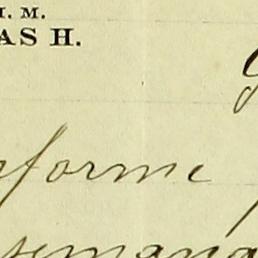 H. M.
AS H.
forme
semana